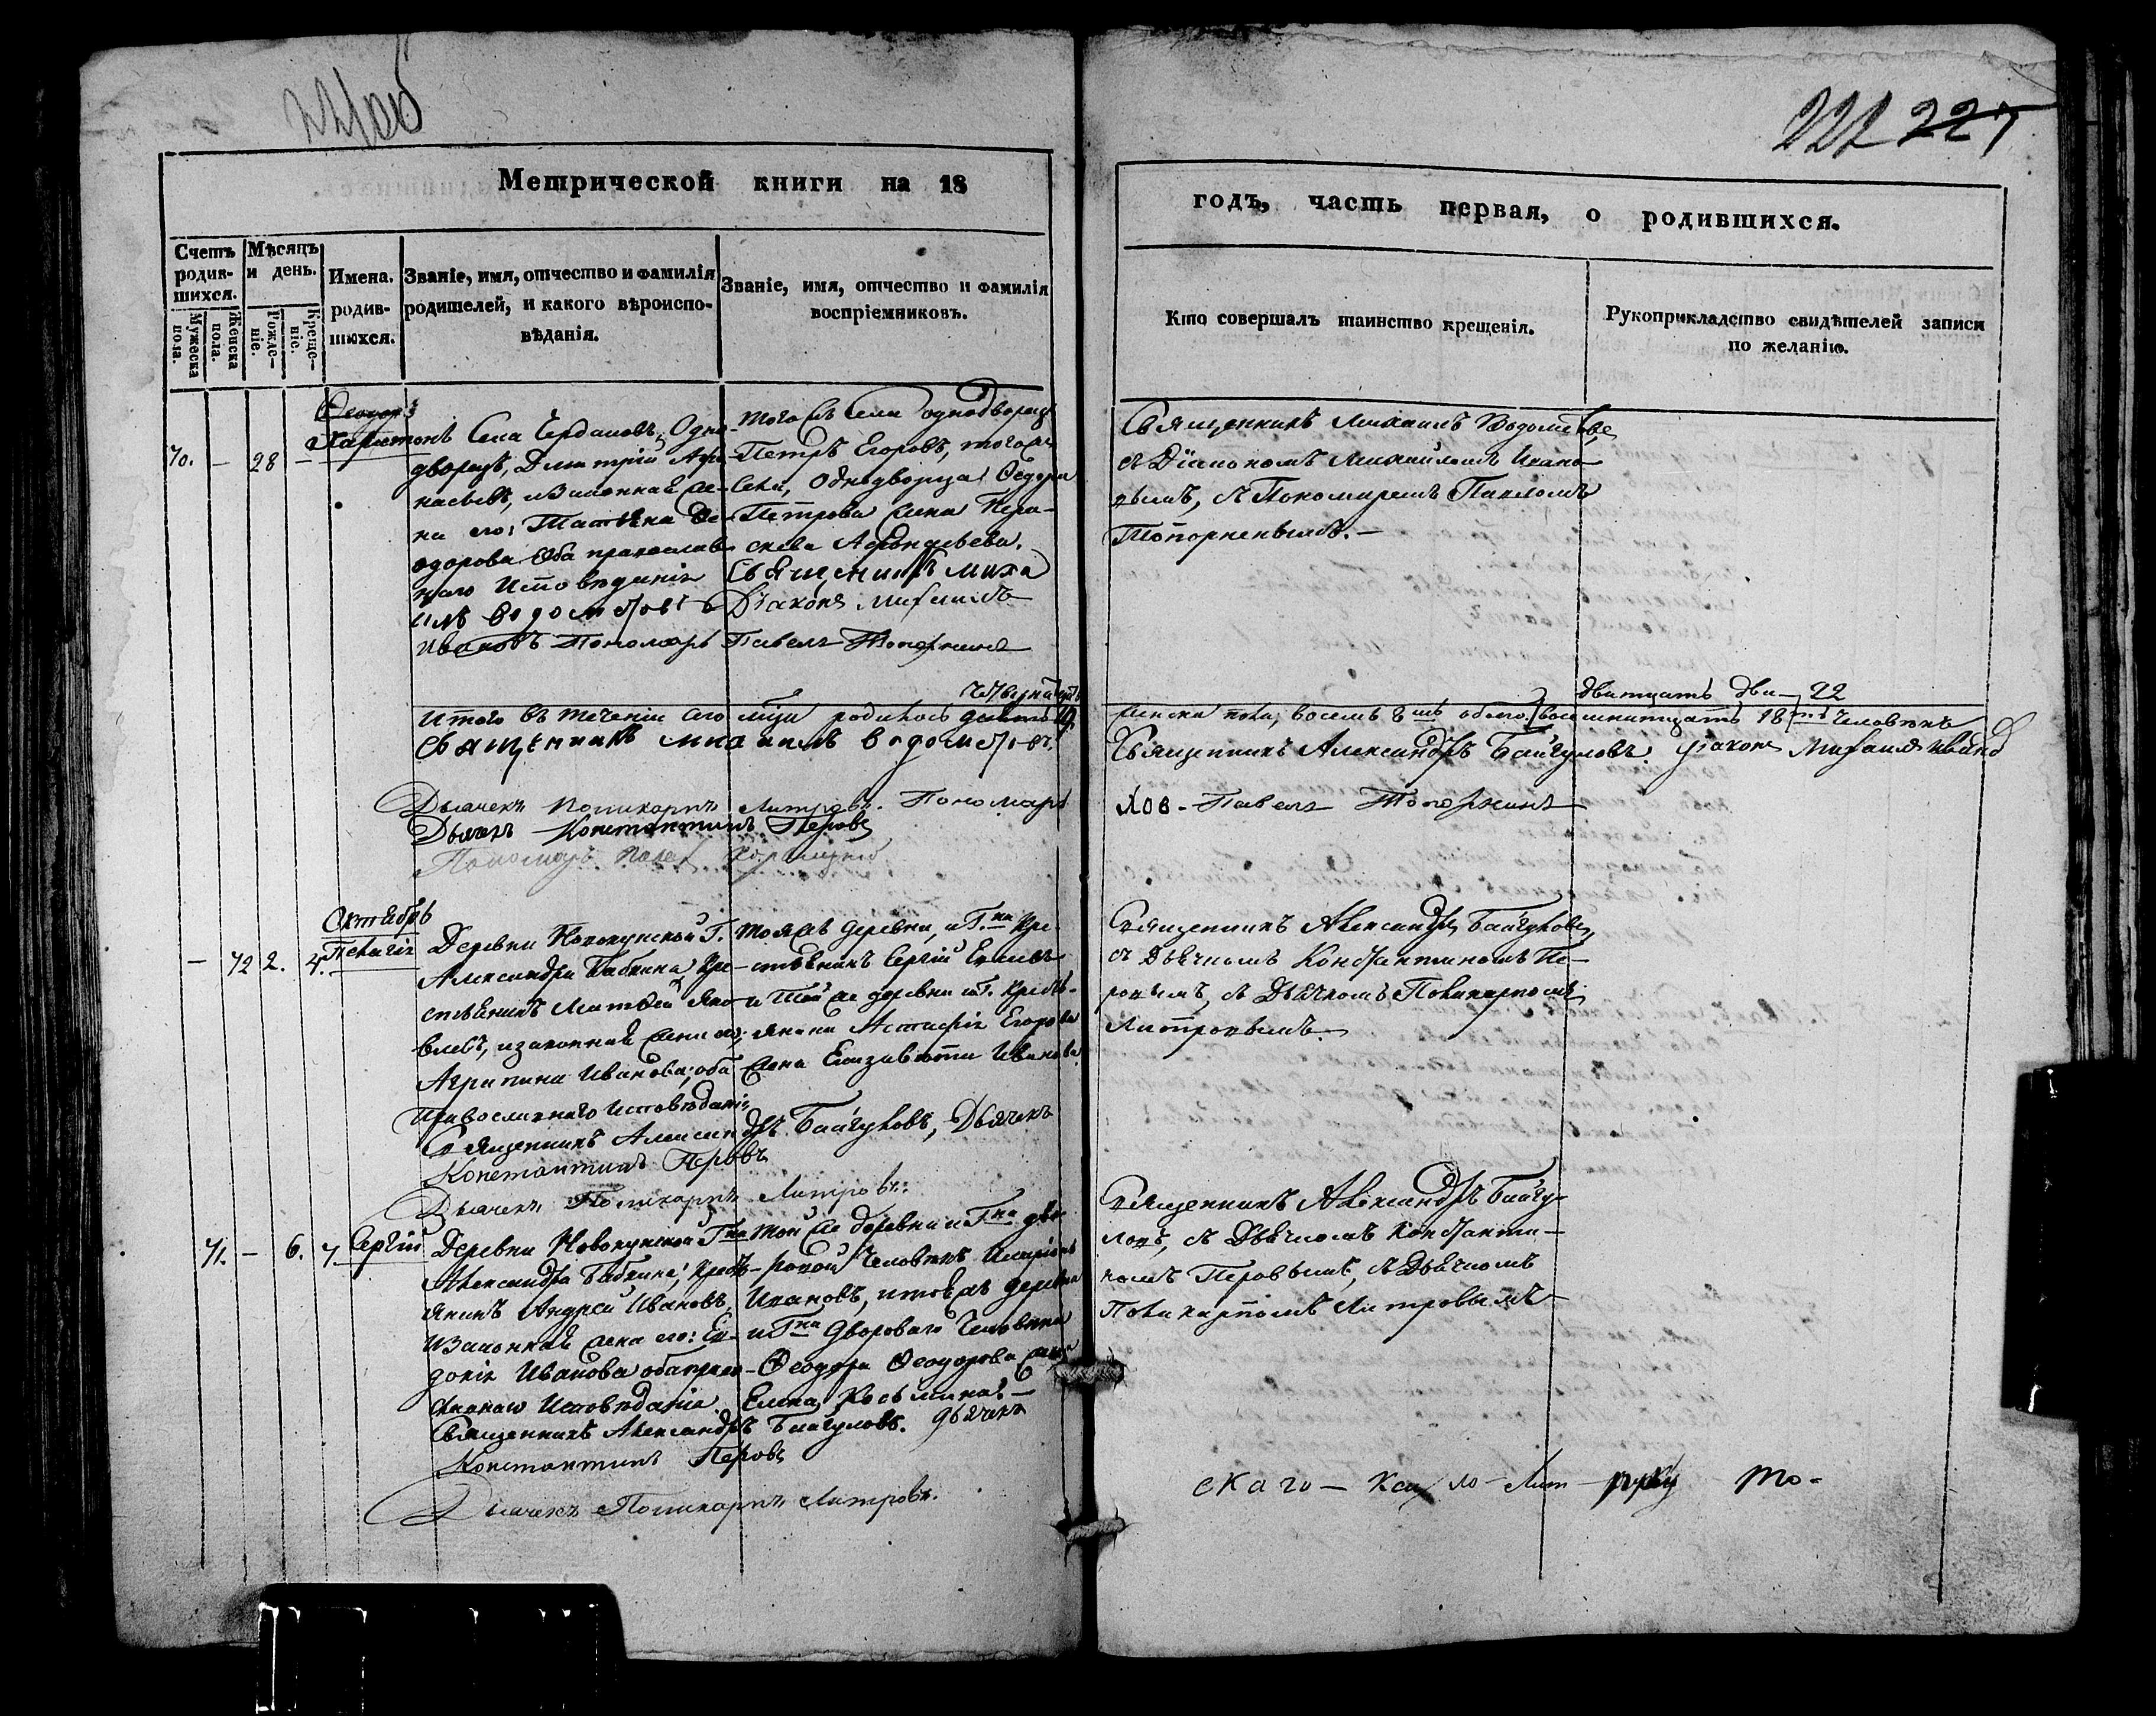 221об
222 227
Метрической книги на 18
годъ, часть первая, о родившихся.
Счетъ родив-шихся.
Мужеска пола.
Женска пола.
Мѣсяцъ и день.
Рожде-ніе.
Креще-ніе.
Имена. родив-шихся.
Званіе, имя, отчество и фамилія
родителей, и какого вѣроиспо-
вѣданія.
Званіе, имя, отчество и фамилія
воспріемниковъ.
Кто совершалъ таинство крещенія.
Рукоприкладство свидѣтелей записи
по желанію.
70. — 28 —
Феодоръ
Харитонъ
Села Чердаковъ, Одно-
дворецъ, Дмитрій Афа-
насьевъ, изаконная же-
на его: Татьяна Фе-
одорова Оба православ-
наго Исповеданія
Того жъ Села однодворецъ
Петръ Егоровъ, тогожъ
Села, Однодворца Федора
Петрова жена Пера-
скева Афонасьева.
Священникъ Миха
илъ Водолеевъ Діаконъ Михаилъ
Ивановъ Пономарь Павелъ Топорнинъ
Священникъ Михаилъ
съ Діакономъ Михайломъ Ивано-
вымъ, съ Пономаремъ Павломъ
Топорненымъ. —
Итого въ теченіи сего мца родилось
женска пола, восемь 8мъ обоего
двատцать два — 22
восемнатцать 18ть человекъ
Священникъ Михаилъ
Священникъ Александръ Байгуловъ. Діаконъ Михаилъ Ивано
Дьячекъ Поликарпъ Литровъ. Пономарь
Павелъ Топорнинъ
Дьячекъ Константинъ Перовъ
Пономарь
Октябрь
— 72 2. 4. Пелагія
Деревни Новокунской Г.
Александра Бабкина Кре-
стьянинъ Матвей Яко-
влевъ, изаконная жена его;
Агрипина Иванова; оба
Православнаго Исповеданія
Тояжъ деревни, и Г.на Кре-
стьянинъ Сергій
и Той же деревни и Г. Кресть-
янина Астафія Егорова
жена Елизавета Иванова
Священникъ Александръ Байгуловъ, Дьячекъ
Константинъ Перовъ
Дьячекъ Поликарпъ Литровъ.
Священникъ Александръ Байгуловъ,
съ Дьячкомъ Константиномъ Пе-
ровымъ, съ Дьячкомъ Поликарпомъ
Литровымъ.
71. — 6. 7 Сергій
Деревни Новокунской Гна
Александра Бабкина, Кресть-
янинъ Андрей Ивановъ,
изаконная жена его: Ев-
докія Иванова обаправо-
славнаго Исповеданія.
Той же деревни и Гна дво-
ровой Человекъ Иларіонъ
Ивановъ, итояжъ деревни
и Гна Двороваго Человека
Феодора Феодорова жена
Елена Косьмина. —
Священникъ Александръ Байгуловъ. Дьячекъ
Константинъ Перовъ
Дьячекъ Поликарпъ Литровъ.
Священникъ Александръ Байгу-
ловъ, съ Дьячкомъ Константи-
номъ Перовымъ, съ Дьячкомъ
Поликарпомъ Литровымъ
скаго — руку то-